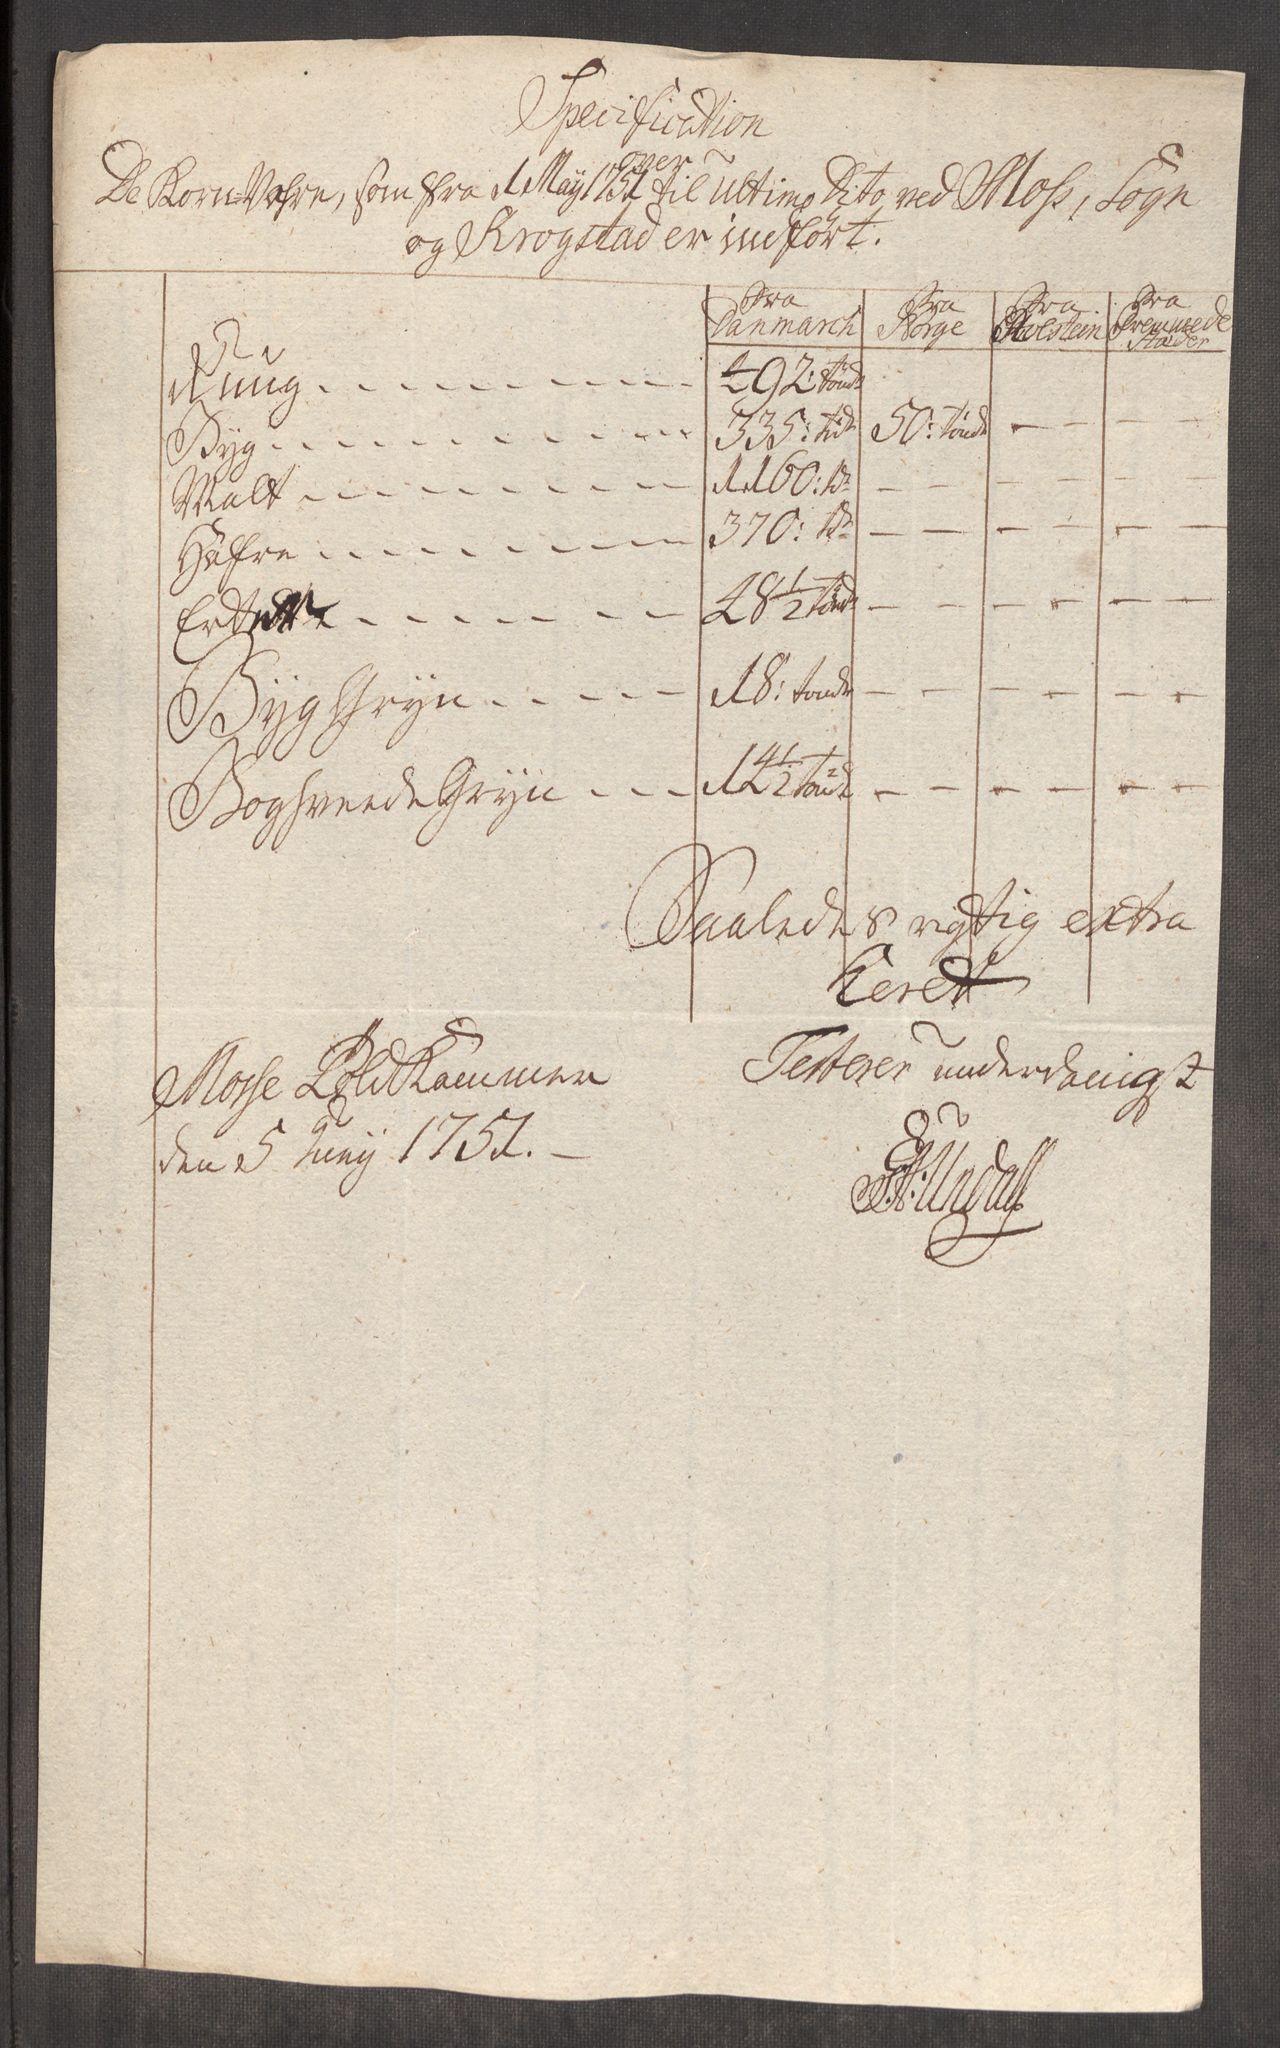 Specification
over
De Korn-Vahre, som fra 1 May 1751 til ultimo Dito, ved Moss, Sogn
og Krogstad er indført.
fra Danmarch fra Norge fra Holstein fra Fremmede Stæder
Ruug - - - - 492: tønde
Byg - - - - 335: tde 50: tønde - - - -
Malt - - - - 1160: tde - - - - - -
Hafre - - - - 370: tde - - - - - -
Erter - - - - 48 1/2 tønde - - - - - -
Byg Gryn - - - - 18: tønde - - - - - -
Boghveede Gryn - - - 14 1/2 tønde - - - - - -
Saaledes rigtig extra
heret
Mosse Told Kammer Testerer underdanigst
den 5 Juny 1751. -